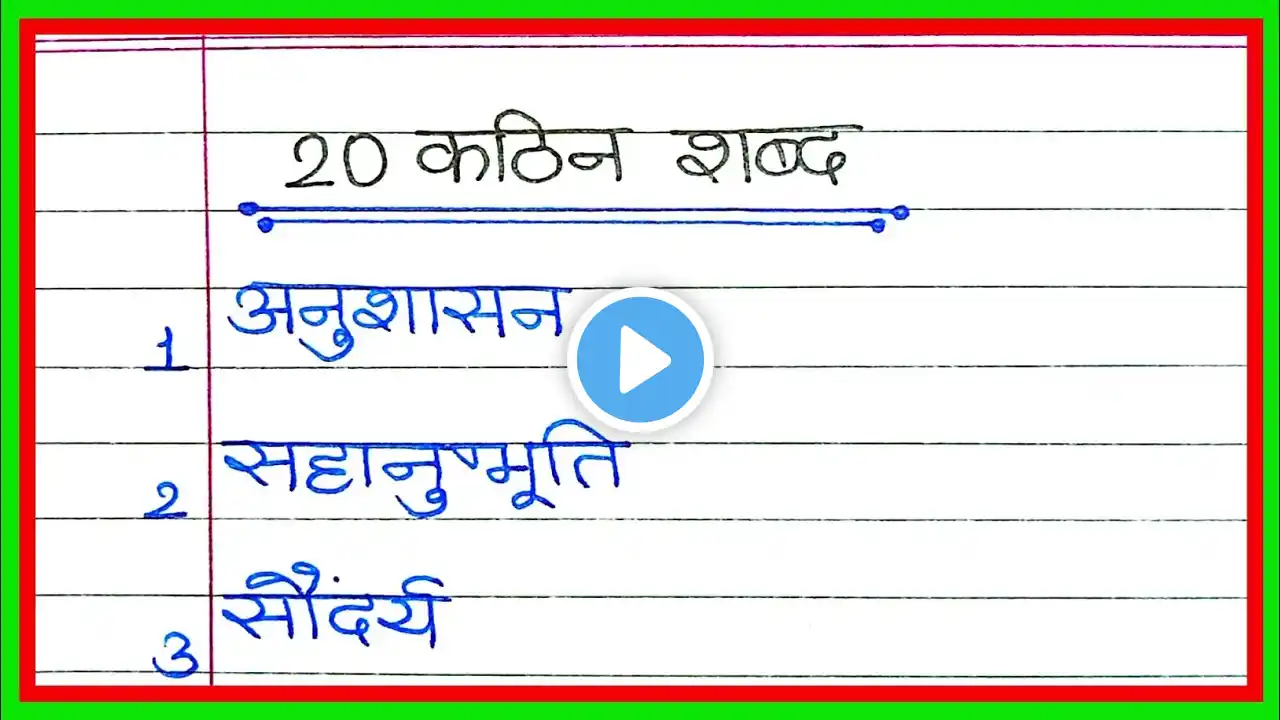 20 कठिन शब्द
1 अनुशासन
2 सहानुभूति
3 सौंदर्य